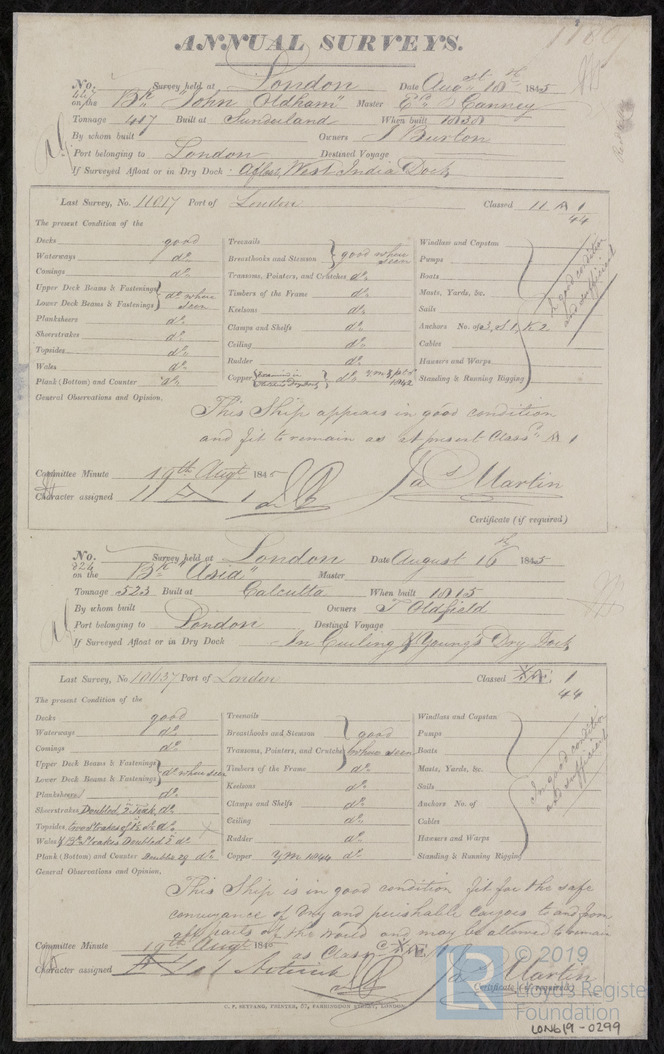 ANNUAL SURVEYS.
No. 447 Survey held at London Date Augst 18th 1845
on the Bk "John Oldham" Master Canney
Tonnage 417 Built at Sunderland When built 1838
By whom built Owners J Burton
Port belonging to London Destined Voyage
If Surveyed Afloat or in Dry Dock Afloat West India Dock
Last Survey, No. 11017 Port of London Classed 11 A 1
44
The present Condition of the
Decks good
Waterways do
Comings do
Upper Deck Beams & Fastenings
Lower Deck Beams & Fastenings do where seen
Planksheers do
Sheerstrakes do
Topsides do
Wales do
Plank (Bottom) and Counter do
Treenails
Breasthooks and Stemson good where seen
Transoms, Pointers, and Crutches do
Timbers of the Frame do
Keelsons do
Clamps and Shelfs do
Ceiling do
Rudder do
Copper do 1842
Windlass and Capstan
Pumps
Boats
Masts, Yards, &c.
Sails
Anchors No. of 3, S 1, K 2
Cables
Hawsers and Warps
Standing & Running Rigging
In good condition
and sufficient
General Observations and Opinion,
This Ship appears in good condition
and fit to remain as at present Classd A 1
Committee Minute 19th Augt 1845
Character assigned 11 A 1
Jas Martin
Certificate (if required)
No. 824 Survey held at London Date August 16th 1845
on the Bk "Asia" Master
Tonnage 523 Built at Calcutta When built 1815
By whom built Owners T Oldfield
Port belonging to London Destined Voyage
If Surveyed Afloat or in Dry Dock In Curling & Young's Dry Dock
Last Survey, No. 10637 Port of London Classed 1
44
The present Condition of the
Decks good
Waterways do
Comings do
Upper Deck Beams & Fastenings
Lower Deck Beams & Fastenings do where seen
Planksheers do
Sheerstrakes Doubled do
Topsides do
Wales Doubled do
Plank (Bottom) and Counter do
Treenails
Breasthooks and Stemson good
Transoms, Pointers, and Crutches where seen
Timbers of the Frame do
Keelsons do
Clamps and Shelfs do
Ceiling do
Rudder do
Copper Y.M. 1844 do
Windlass and Capstan
Pumps
Boats
Masts, Yards, &c.
Sails
Anchors No. of
Cables
Hawsers and Warps
Standing & Running Rigging
In good condition
and sufficient
General Observations and Opinion,
This Ship is in good condition fit for the safe
conveyance of dry and perishable cargoes to and from
all parts of the World and may be allowed to remain
as Class
Committee Minute 19th Augt 1845
Character assigned
Jas Martin
Certificate (if required)
C. F. SEYFANG, PRINTER, 57, FARRINGDON STREET, LONDON.
© 2019
Lloyd's Register
Foundation
LR
LON619-0299